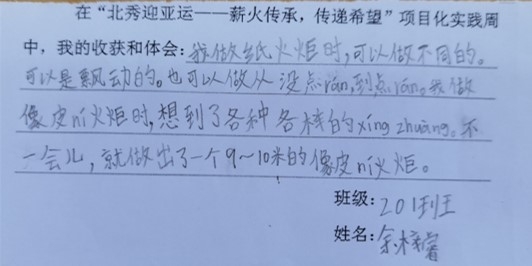 在“北秀迎亚运——薪火传承，传递希望”项目化实践周
中，我的收获和体会：我做纸火炬时，可以做不同的。
可以是飘动的。也可以做从没点rán，到点rán。我做
像皮ní火炬时，想到了各种各样的xíng zhuàng。不
一会儿，就做出了一个9～10米的像皮ní火炬。
班级：201班
姓名：余梓睿